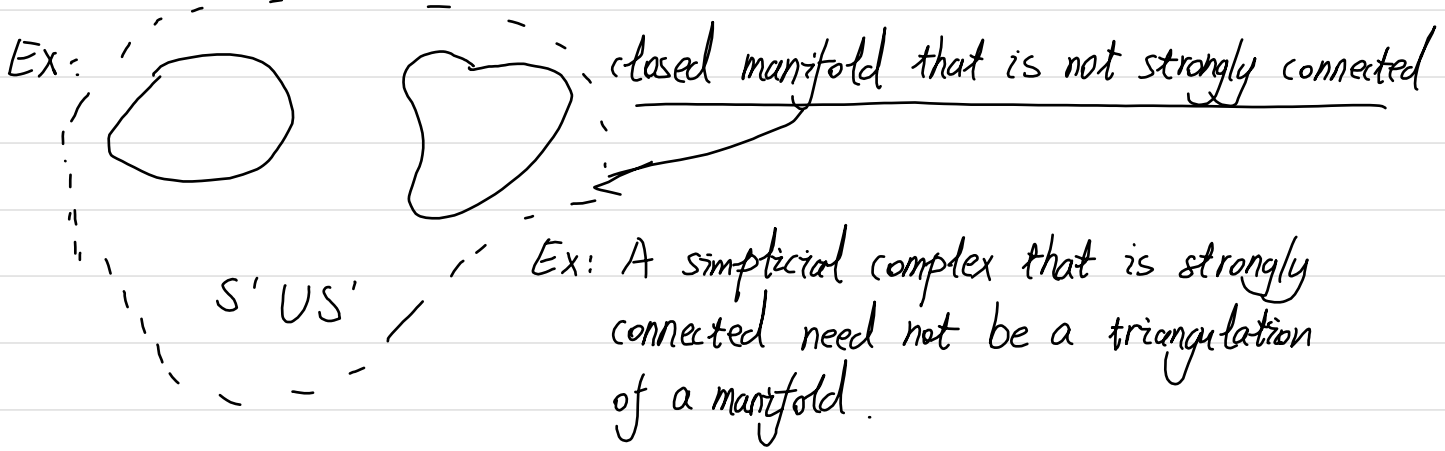 Ex: closed manifold that is not strongly connected
S' U S'
Ex: A simplicial complex that is strongly
connected need not be a triangulation
of a manifold.